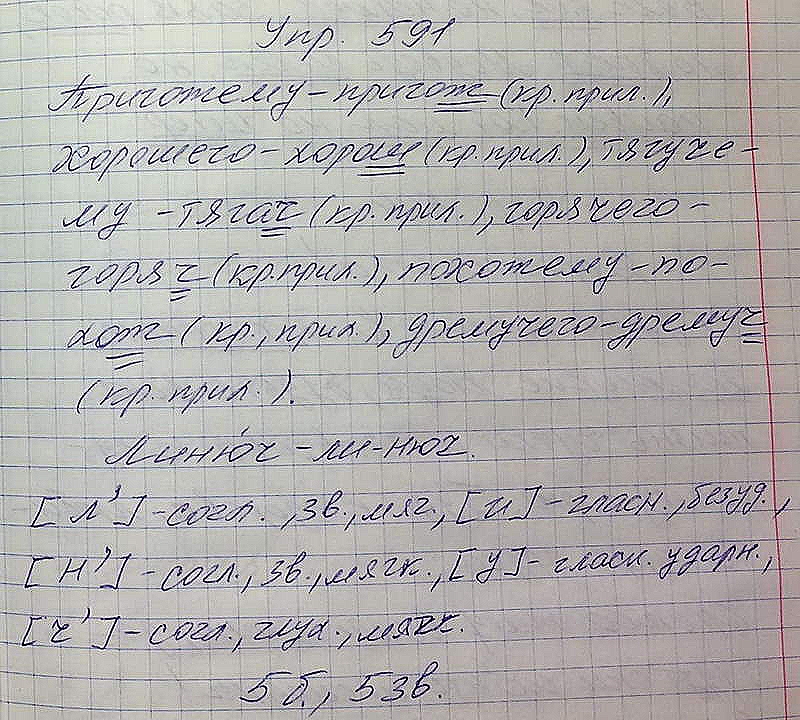 Упр. 591
Пригожему - пригож (кр. прил.),
хорошего - хорош (кр. прил.), тягуче-
му - тягач (кр. прил.), горячего -
горяч (кр.прил.), похожему - по-
хож (кр., прил.), дремучего - дремуч
(кр. прил.).
Линю́ч - ли-нюч.
[л'] - согл., зв., мяг., [и] - гласн., безуд.,
[н'] - согл., зв., мягк., [у] - гласн. ударн.,
[ч'] - согл., глух., мягк.
5 б., 5 зв.